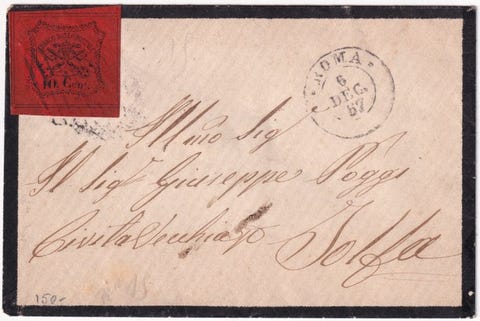 10. Cent.
ROMA
6
DEC.
67
Ill.mo Sig
Il Sig.r Giuseppe Poggi
Civita Vecchia p
Tolfa
150-